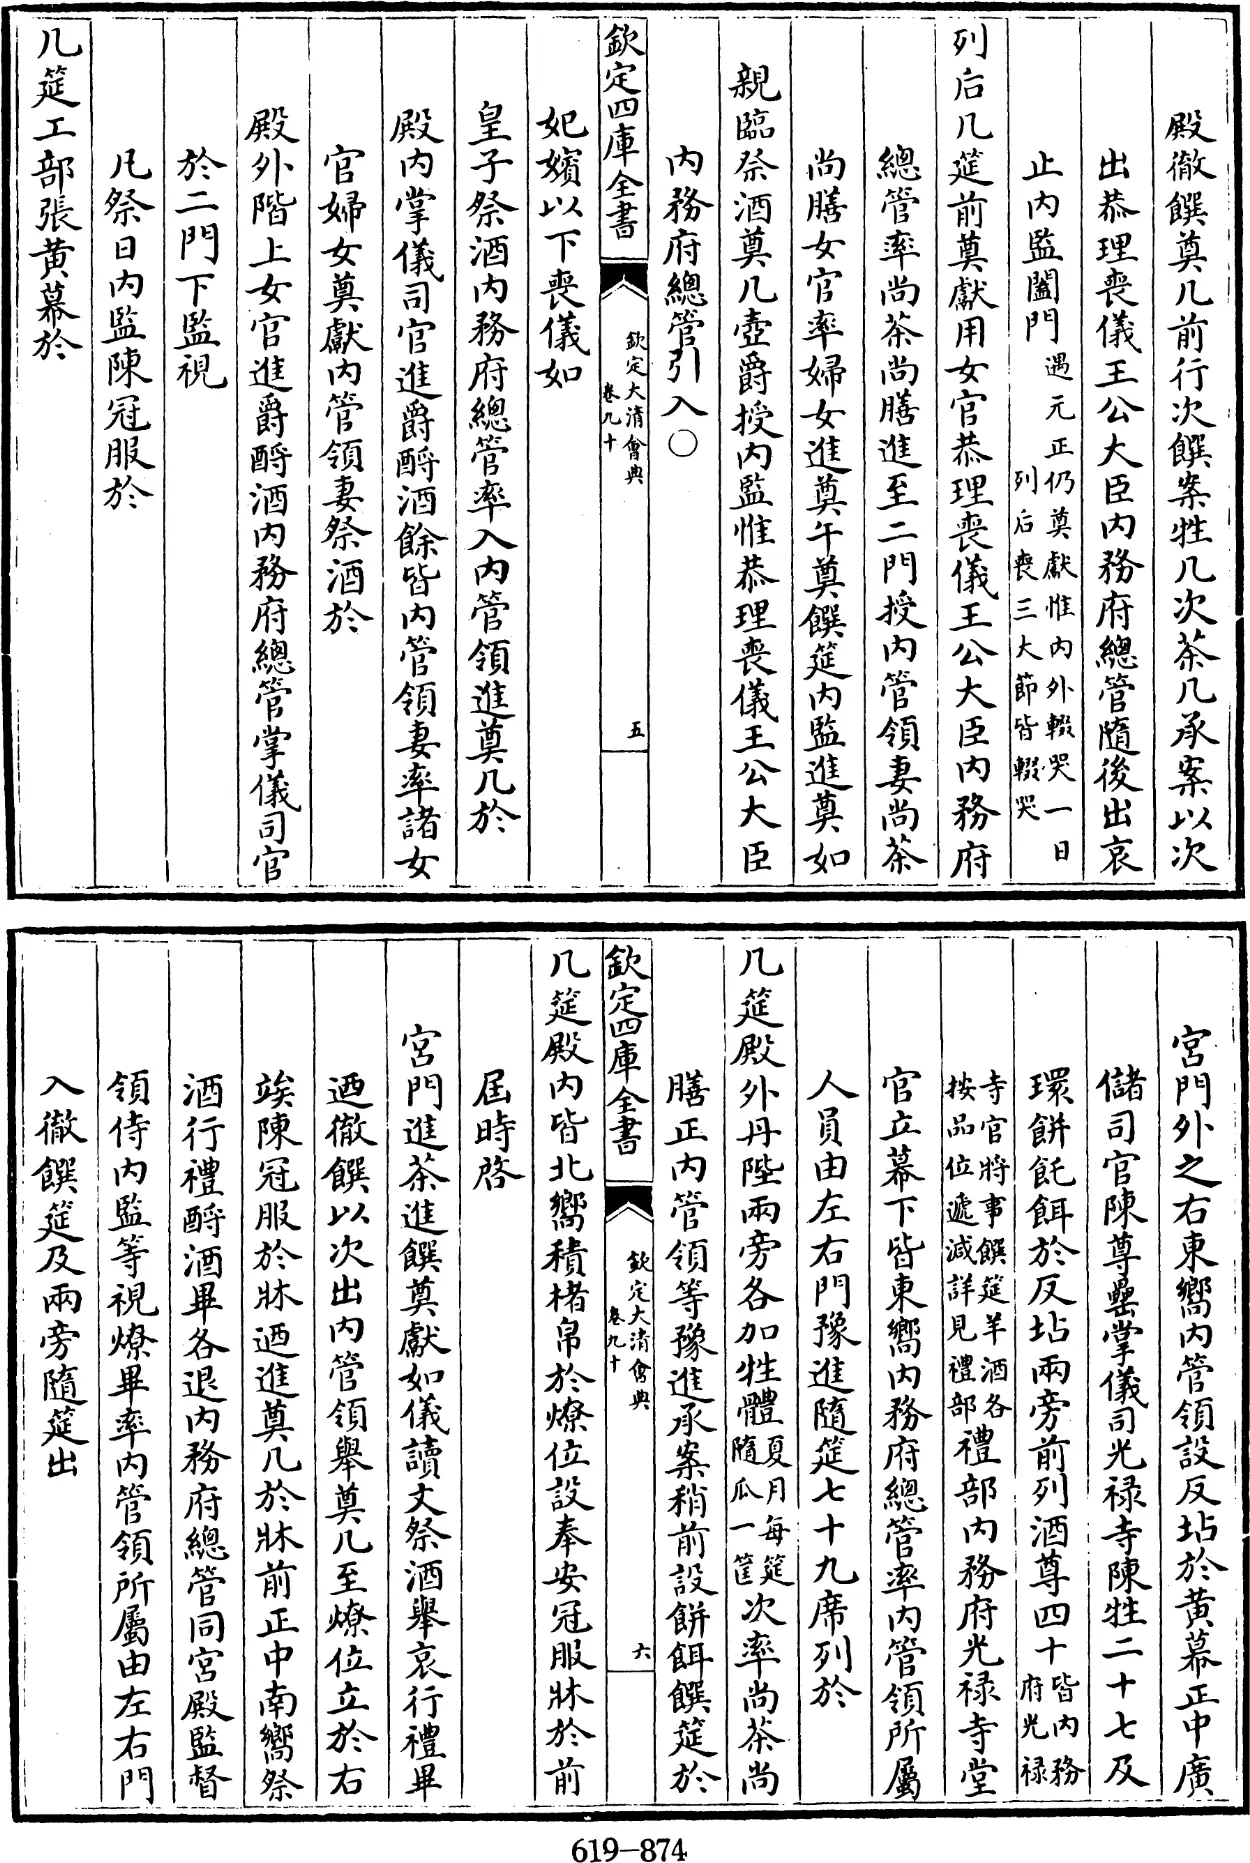 殿徹饌奠几前行次饌案牲几次茶几承案以次
出恭理喪儀王公大臣内務府總管隨後出哀
止内監闔門遇元正仍奠獻惟内外輟哭一日列后喪三大節皆輟哭
列后几筵前奠獻用女官恭理喪儀王公大臣内務府
總管率尚茶尚膳進至二門授内管領妻尚茶
尚膳女官率婦女進奠午奠饌筵内監進奠如
親臨祭酒奠几壺爵授内監惟恭理喪儀王公大臣
内務府總管引入○
欽定四庫全書
欽定大清會典
卷九十
五
妃嬪以下喪儀如
皇子祭酒内務府總管率入内管領進奠几於
殿内掌儀司官進爵酹酒餘皆内管領妻率諸女
官婦女奠獻内管領妻祭酒於
殿外階上女官進爵酹酒内務府總管掌儀司官
於二門下監視
凡祭日内監陳冠服於
几筵工部張黄幕於
宫門外之右東嚮内管領設反坫於黄幕正中廣
儲司官陳尊罍掌儀司光禄寺陳牲二十七及
環餅飥餌於反坫兩旁前列酒尊四十皆内務府光禄
寺官將事饌筵羊酒各按品位遞減詳見禮部禮部内務府光禄寺堂
官立幕下皆東嚮内務府總管率内管領所屬
人員由左右門豫進隨筵七十九席列於
几筵殿外丹陛兩旁各加牲體夏月每筵隨瓜一筐次率尚茶尚
膳正内管領等豫進承案稍前設餅餌饌筵於
欽定四庫全書
欽定大清會典
卷九十
六
几筵殿内皆北嚮積楮帛於燎位設奉安冠服牀於前
屆時啓
宫門進茶進饌奠獻如儀讀文祭酒舉哀行禮畢
迺徹饌以次出内管領舉奠几至燎位立於右
竢陳冠服於牀迺進奠几於牀前正中南嚮祭
酒行禮酹酒畢各退内務府總管同宫殿監督
領侍内監等視燎畢率内管領所屬由左右門
入徹饌筵及兩旁隨筵出
619-874